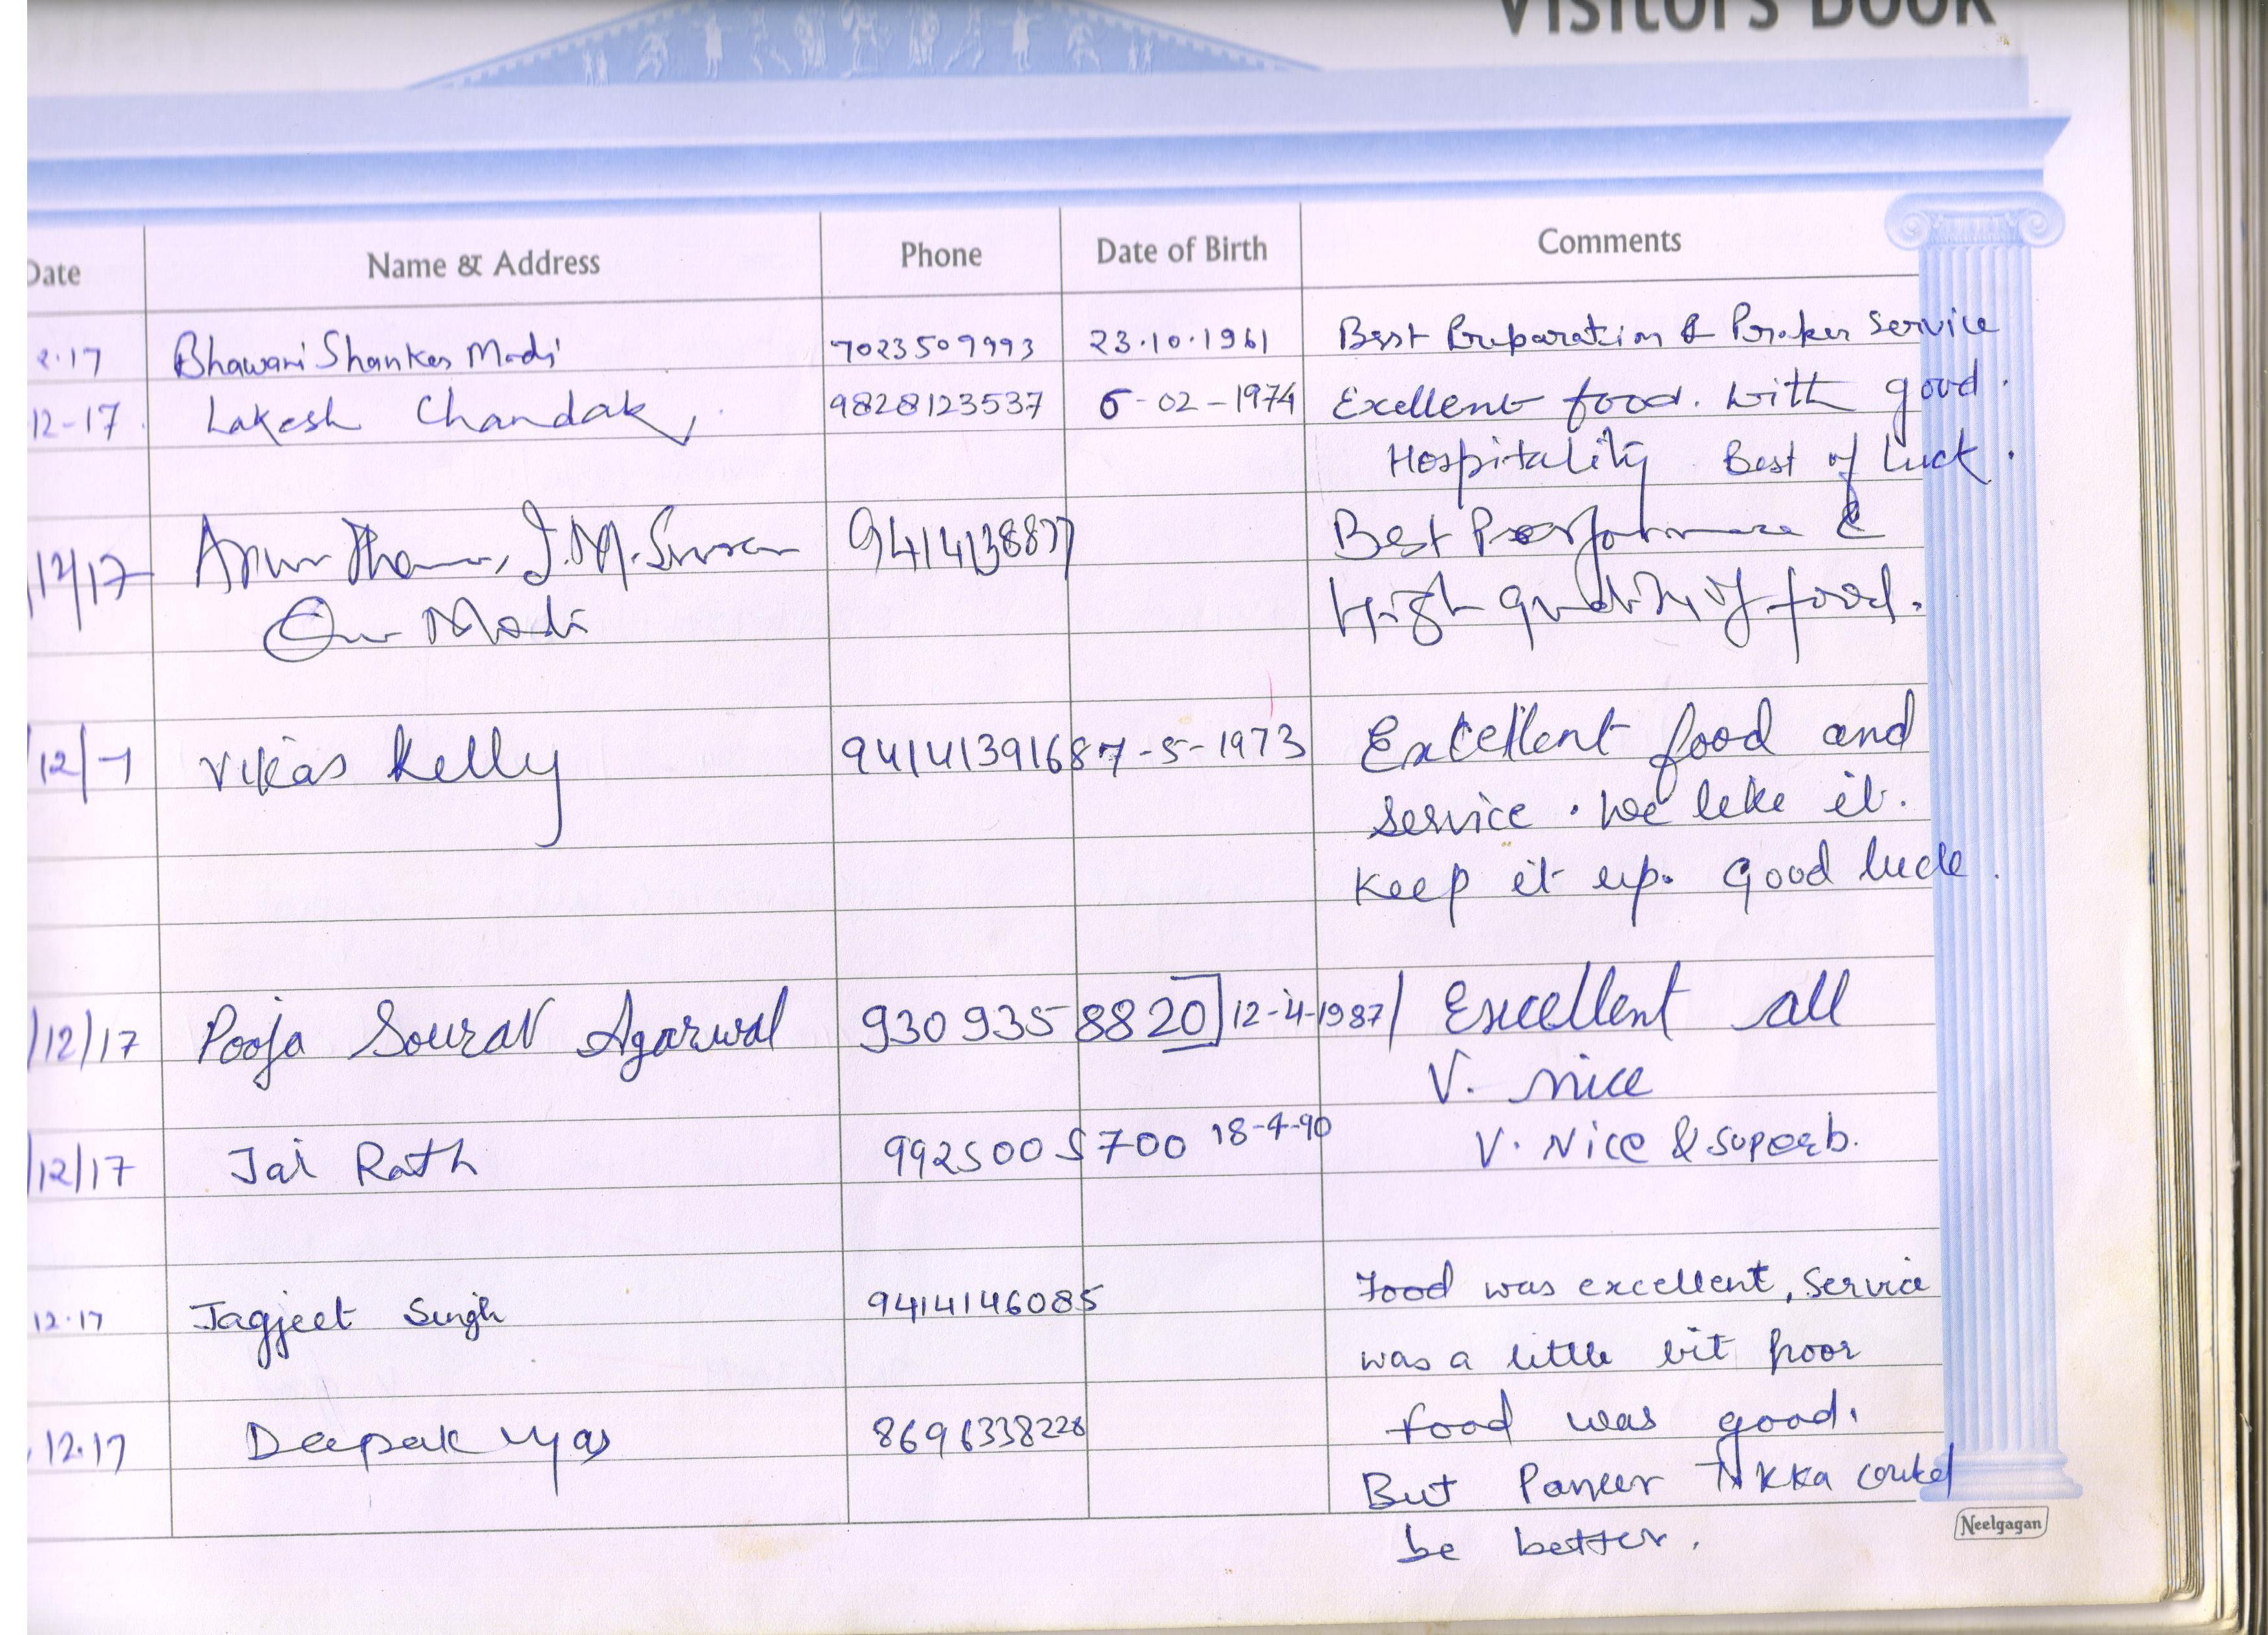 VISITOR'S BOOK
Date Name & Address Phone Date of Birth Comments
2.17 Bhawani Shanker Modi 7023509993 23.10.1961 Best Preparation & Service
12-17 Lakesh Chandak 9828123537 6-02-1974 Exellent food. with good.
Hospitality Best of luck.
/12/17 J.M. 9414138877 Best &
Modi High quality of food.
/12/ Vikas Kelly 9414139168 7-5-1973 Excellent food and
service. we like it.
Keep it up. Good luck.
/12/17 Pooja Sourav Agarwal 9309358820 12-4-1987/ Excellent all
V. nice
/12/17 Jai Rath 9925005700 18-4-90 V. Nice & superb.
12.17 Jagjeet Singh 9414146085 Food was excellent, Service
was a little bit poor
.12.17 Deepak Vyas 8696338228 food was good.
But Paneer Tikka could
be better.
Neelgagan